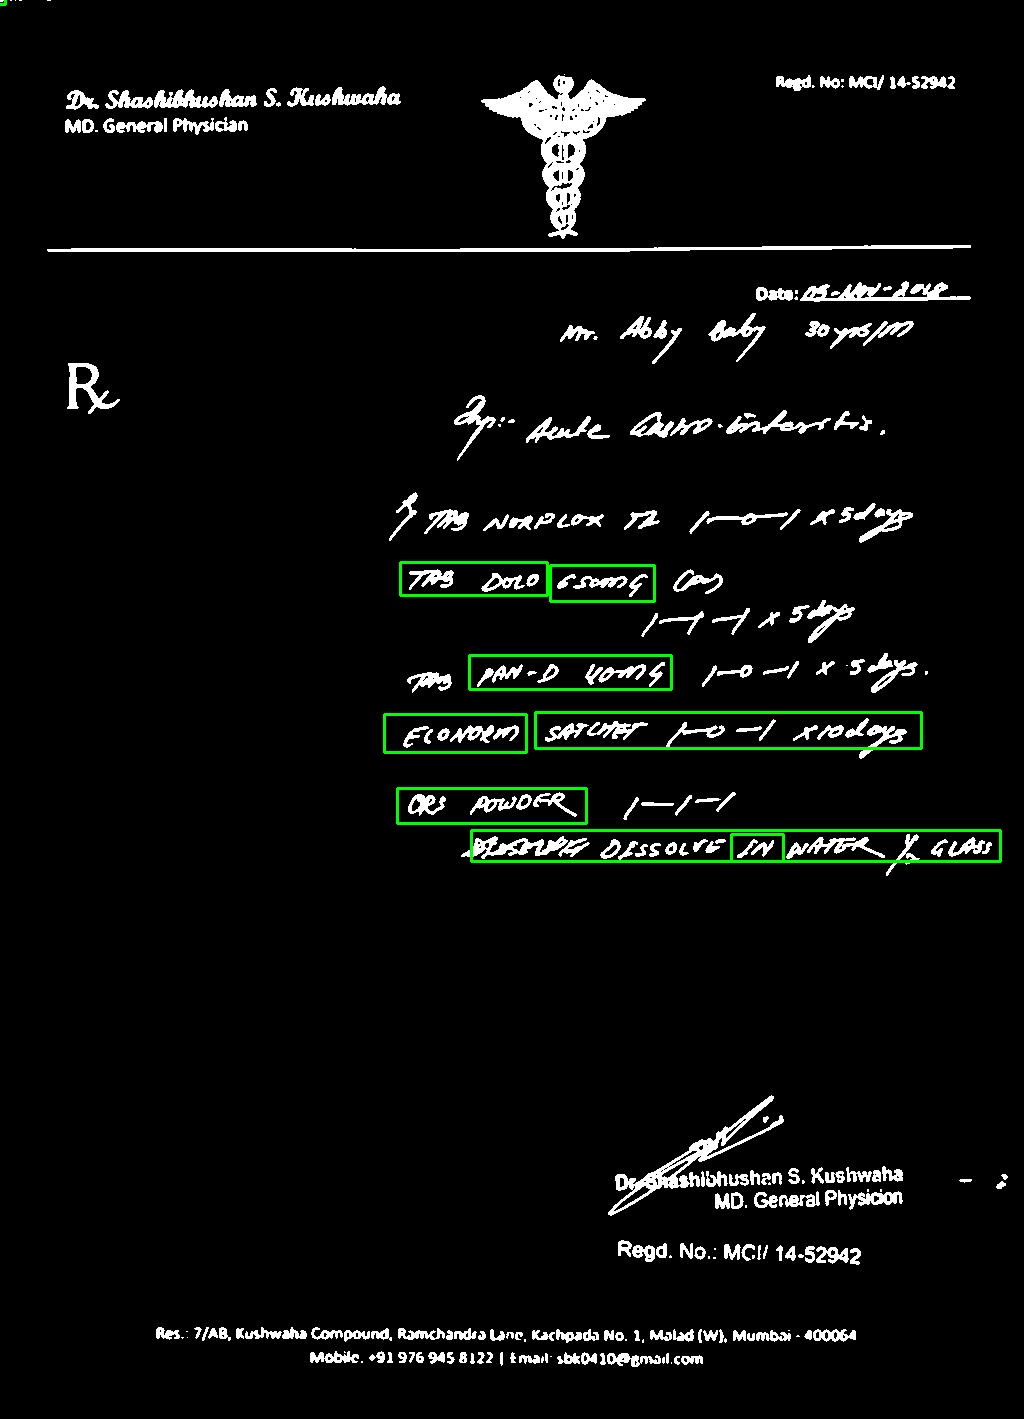 Dr. Shashibhushan S. Kushwaha
MD. General Physician
Regd. No: MCI/ 14-52942
Date: 05-Nov-2018
Mr. Abby Baby 30 yrs/m
Rx
Imp:- Acute Gastro-Enterstis.
TAB NORFLOX TZ 1-0-1 x 5 days
TAB DOLO 650MG
1-1-1 x 5 days
TAB PAN-D 40MG 1-0-1 x 5 days.
ECONORM SATCHET 1-0-1 x 10 days
ORS POWDER 1-1-1
DESSOLVE IN WATER 1/2 GLASS
Dr. Shashibhushan S. Kushwaha
MD. General Physicion
Regd. No.: MCI/ 14-52942
Res.: 7/AB, Kushwaha Compound, Ramchandra Lane, Kachpada No. 1, Malad (W), Mumbai - 400064
Mobile. +91 976 945 8122 | Email: sbk0410@gmail.com